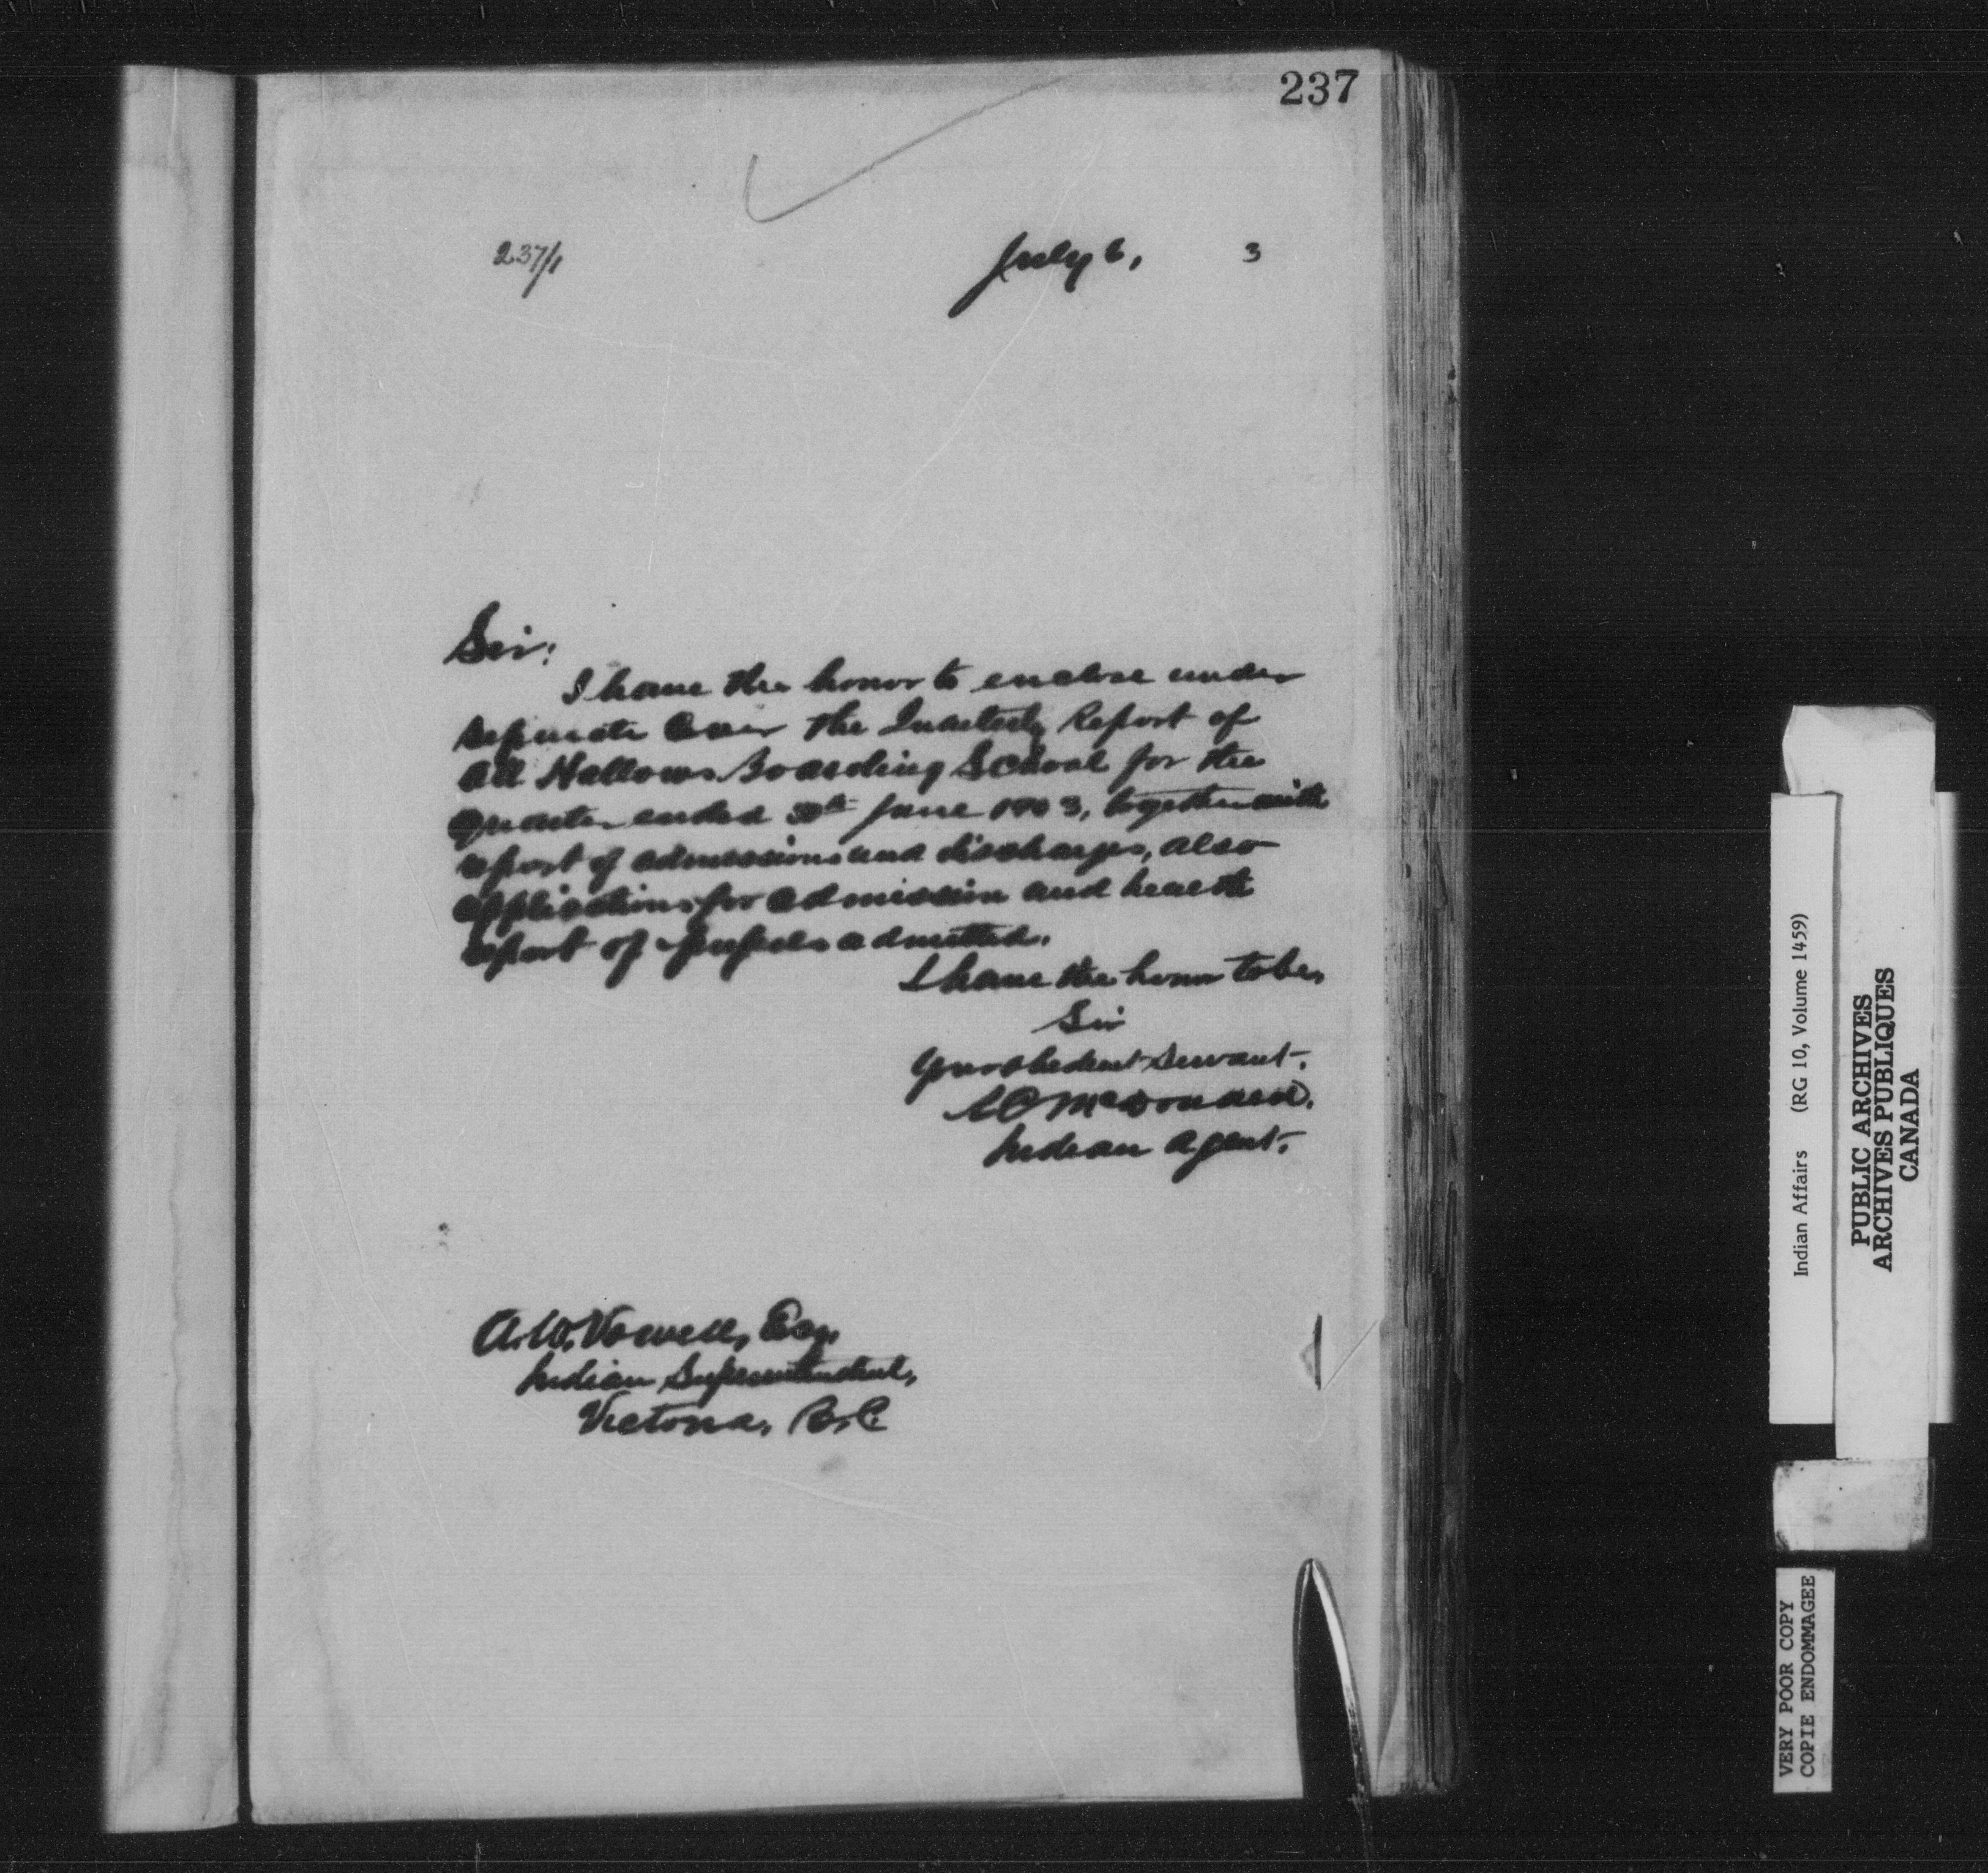 237
237/1 July 6, 3
Sir:
I have the honor to enclose under
separate cover the Quarterly Report of
All Hallows Boarding School for the
Quarter ended 30th June 1903, together with
report of admissions and discharges, also
applications for admission and health
report of pupils admitted.
I have the honor to be,
Sir
Your obedient Servant.
McDonald.
Indian Agent.
A.W. Vowell, Esq,
Indian Superintendent,
Victoria, B.C.
Indian Affairs (RG 10, Volume 1459)
PUBLIC ARCHIVES
ARCHIVES PUBLIQUES
CANADA
VERY POOR COPY
COPIE ENDOMMAGEE